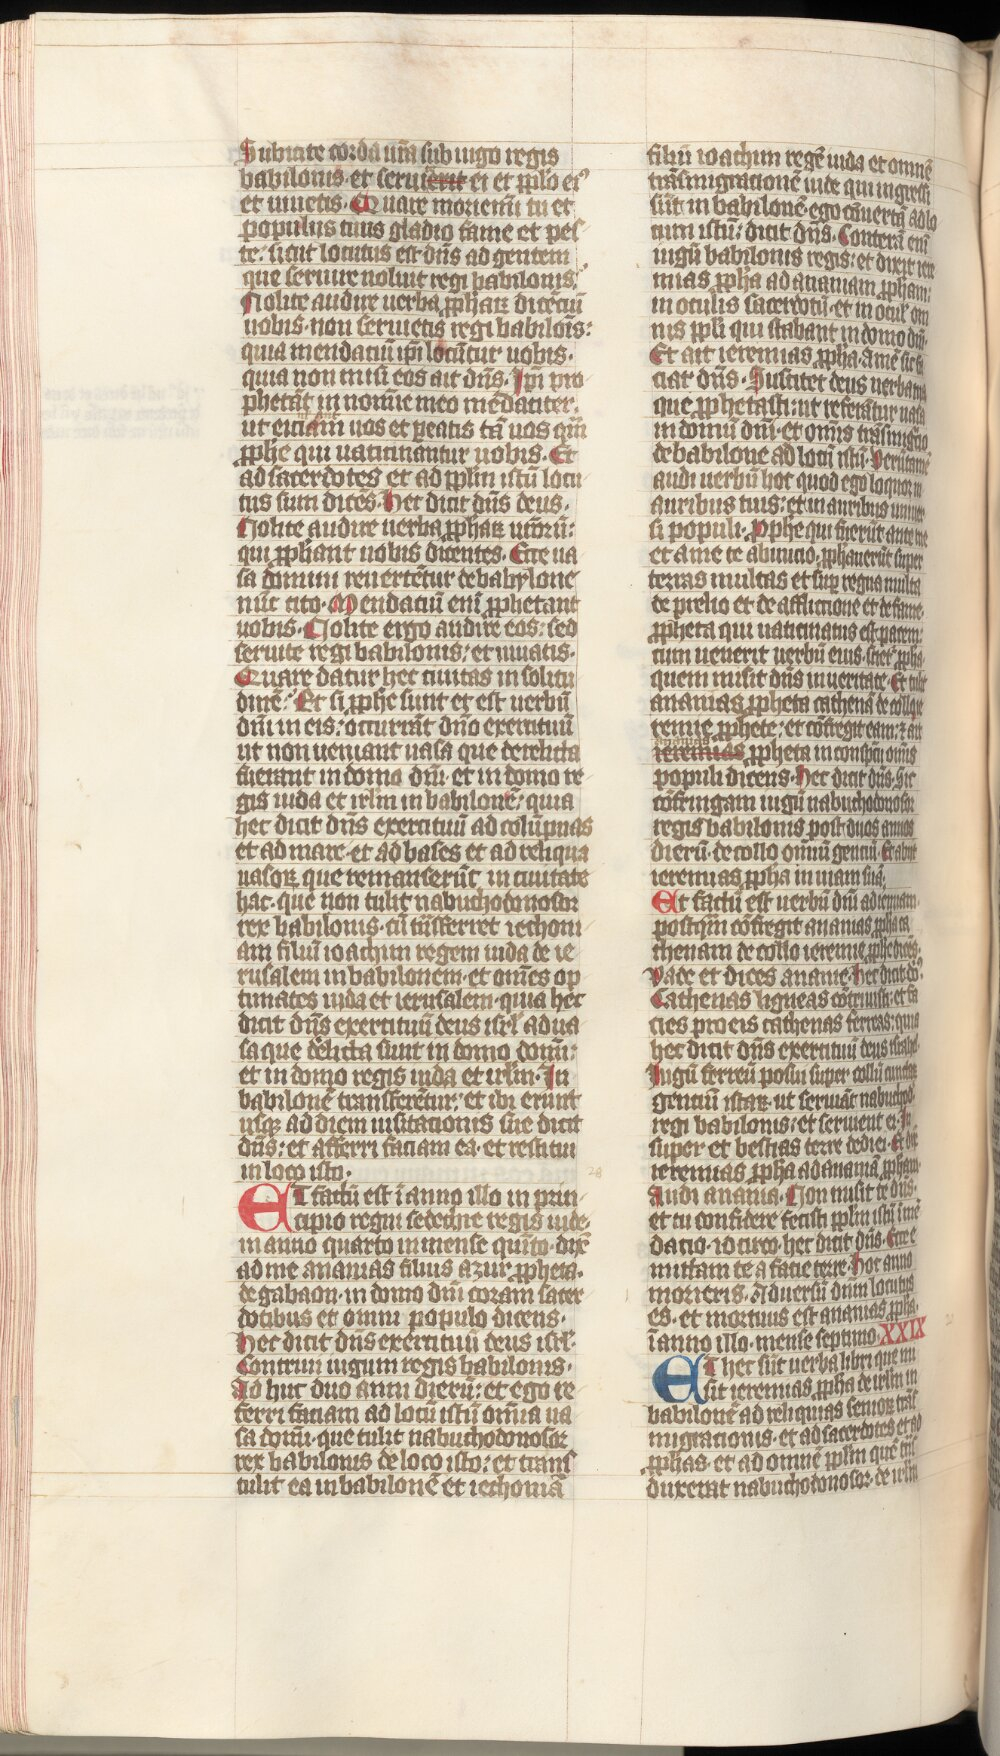 Subicite corda ur̄a sub iugo regis
babilonis· et seruieritis ei et pp̄lo ei9
et uiuetis· Quare moriemī tu et
populus tuus gladio fame et pes
te· sicut locutus est dn̄s ad gentem
que seruire noluit regi babilonis:
Nolite audire uerba ꝓphaꝝ dicēciū
uobis· non seruietis regi babilois̄:
quia mendaciū ip̄i locūtur uobis·
quia non misi eos ait dn̄s· Ip̄i pro
phetāt in nomine meo mēdaciter:
ut eiciam uos et ꝑeatis tā uos qm̄
ꝓphe qui uaticinantur uobis· Et
ad sacerdotes et ad pp̄lm istū locu
tus sum dices· Hec dicit dn̄s deus·
Nolite audire uerba ꝓphaꝝ ur̄orū:
qui ꝓphant uobis dicentes· Ecce ua
sa domini reuertētur de babylone
nūc cito· Mendaciū eni ꝓphetant
uobis· Nolite ergo audire eos: sed
seruite regi babilonis: et uiuatis·
Quare datur hec ciuitas in solitu
dinē: Et si ꝓphe sunt et est uerbū
dn̄i in eis: occurrāt dn̄o exercituū
ut non ueniant uasa que derelicta
fuerant in domo dn̄i· et in domo re
gis iuda et irl̄m in babilonē: quia
hec dicit dn̄s exercituū ad colūpnas
et ad mare· et ad bases et ad reliqua
uasoꝝ que remanserūt in ciuitate
hac· que non tulit nabuchodonosor
rex babilonis· cū trāsferret iechoni
am filiū ioachim regem iuda de ie
rusalem in babilonem· et om̄es op
timates iuda et ierusalem· quia hec
dicit dn̄s exercituū deus isrl̄ ad ua
sa que delicta sunt in domo domī:
et in domo regis iuda et irl̄m· In
babilonē transferētur: et ibi erunt
usqꝫ ad diem uisitacionis sue dicit
dn̄s: et afferri faciam ea· et restitui
in loco isto·
28
ET factū est ī anno illo in prin
cipio regni sedechie regis iude·
in anno quarto in mense quīto· dix̄
ad me ananias filius azur ꝓpheta·
de gabaon· in domo dn̄i coram sacer
dotibus et omni populo dicens·
Hec dicit dn̄s exercituū deus isrl̄·
Contriui iugum regis babilonis·
Adhuc duo anni dierū: et ego re
ferri faciam ad locū istū omīa ua
sa domī· que tulit nabuchodonosor
rex babilonis de loco isto: et trans
tulit ea in babilonē et iechoniā
filiū ioachim regē iuda et omnē
trāsmigracionē iude qui ingressi
sūt in babilonē· ego cōuertā ad lo
cum istū: dicit dn̄s· Conterā enī
iugū babilonis regis: et dixit iere
mias ꝓpha ad ananiam ꝓpham:
in oculis sacerdotū· et in ocul' om
nis pp̄li qui stabant in domo dn̄i·
Et ait ieremias ꝓpha· amē sic fa
ciat dn̄s· Suscitet deus uerba tua
que ꝓphetasti: ut referātur uasa
in domū dn̄i· et omīs trāsmigrō
de babilone ad locū istū· Uerūtamē
audi uerbū hoc quod ego loquor in
auribus tuis: et in auribus uniuer
si populi· Ꝓphe qui fuerūt ante me
et ante te ab inicio· ꝓphauerūt super
terras multas et suꝑ regna multa
de prelio et de afflictione et de fame·
Ꝓpheta qui uaticinatus est pacem:
cum uenerit uerbū eius· sciet² ꝓpha·
quem misit dn̄s in ueritate· Et tulit
ananias ꝓpheta cathenā de collo ie
remie ꝓphete: et cōfregit eam: ⁊ ait
ananias
ieremias ꝓpheta in conspcū omīs
populi dicens· Hec dicit dn̄s· Sic
cōfringam iugū nabuchodonosor
regis babilonis post duos annos
dierū· de collo omniū genciū· Et abijt
ieremias ꝓpha in uiam suā·
Et factū est uerbū dn̄i ad ieremiam·
postq̄m cōfregit ananias ꝓpha ca
thenam de collo ieremie ꝓphe dicēs·
Uade et dices ananie· Hec dicit dn̄s·
Cathenas ligneas cōtriuisti: et fa
cies pro eis cathenas ferreas: quia
hec dicit dn̄s exercituū deus israhel·
Iugū ferreū posui super collū cunctaꝝ
genciū istaꝝ· ut seruiāt nabuchod·
regi babilonis: et seruient ei· In
super et bestias terre dedi ei· Et dix̄
ieremias ꝓpha ad ananiā ꝓpham·
Audi anania· Non misit te dn̄s:
et tu confidere fecisti pp̄lm istū ī mē
dacio· idcirco· hec dicit dn̄s· Ecce ē
mittam te a facie terre· Hoc anno
morieris· Aduersū dn̄m locutus
es· et mortuus est ananias ꝓpha·
ī anno illo· mense septimo· XXIX
29
ET hec sūt uerba libri que mi
sit ieremias ꝓpha de irl̄m in
babilonē ad reliquias senioꝝ trās
migracionis· et ad sacerdotes et ad
ꝓphas· et ad omnē pp̄lm quē trās
duxerat nabuchodonosor· de irl̄m